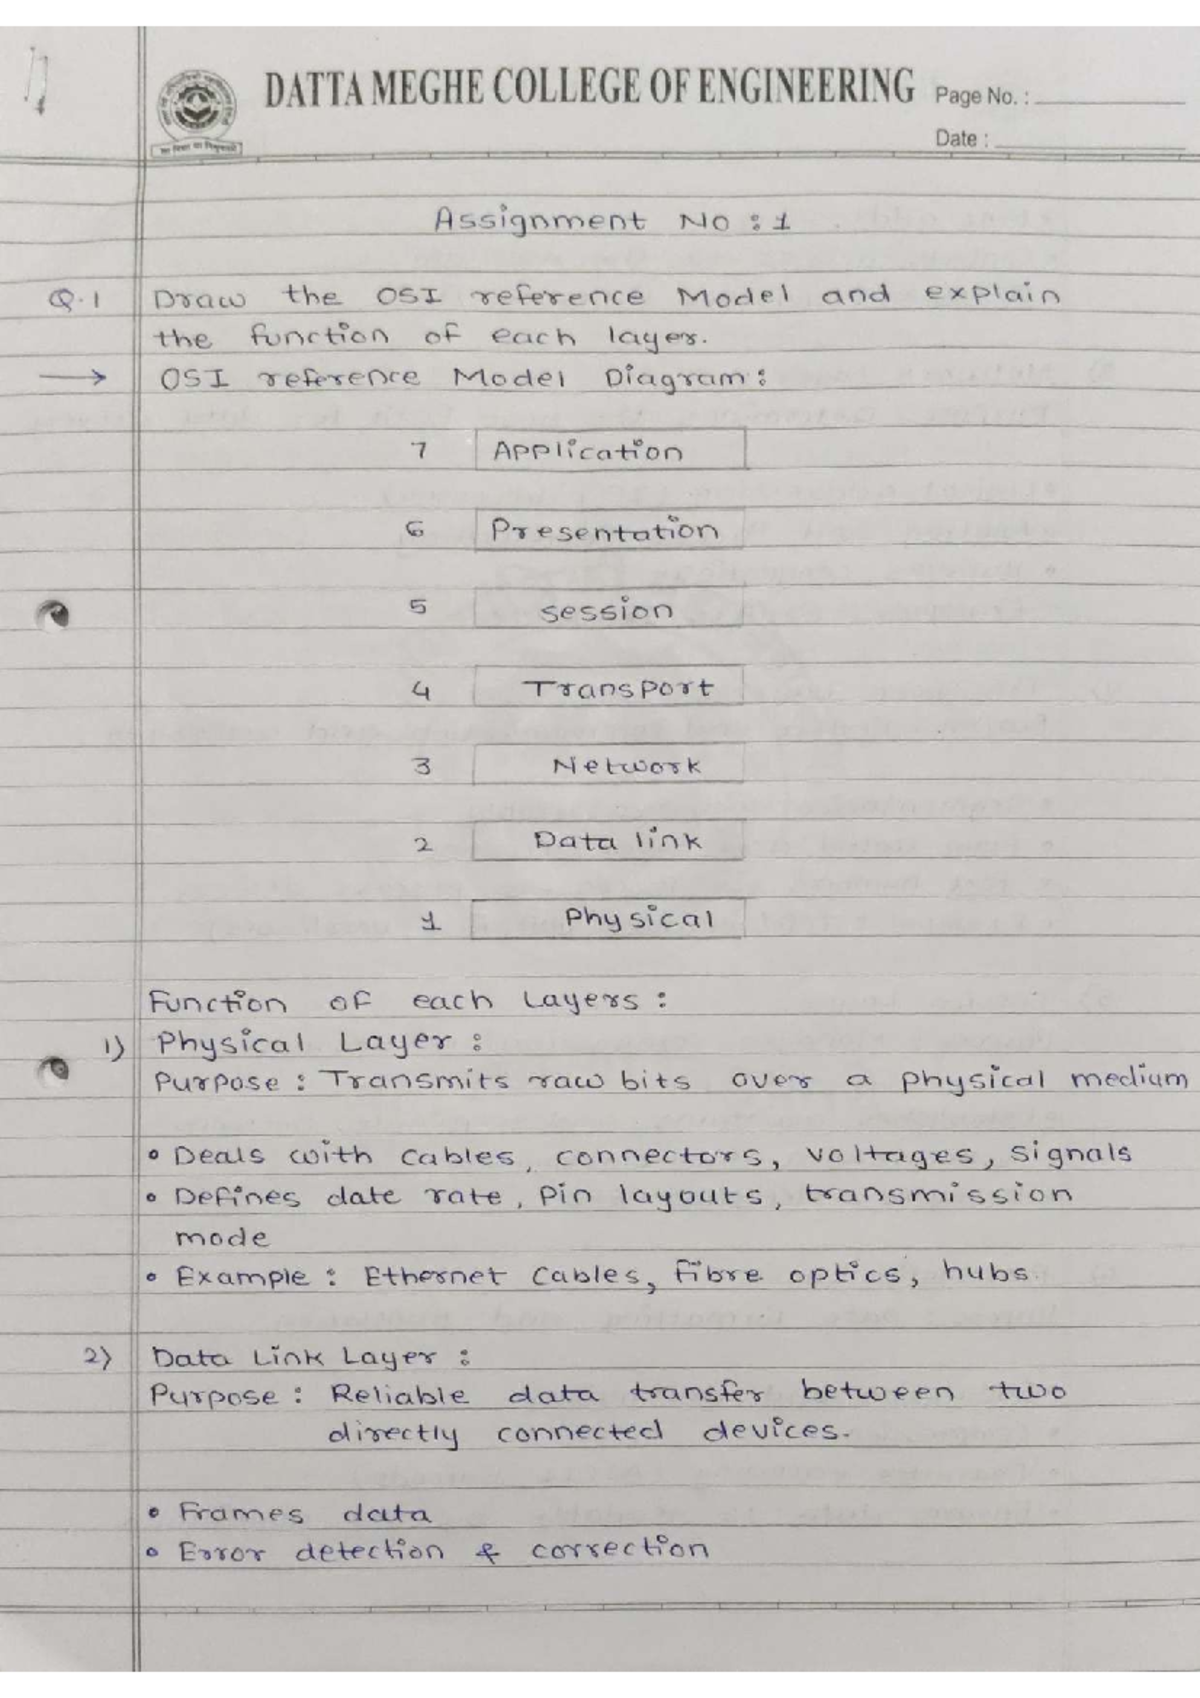 DATTA MEGHE COLLEGE OF ENGINEERING Page No. :
Date :
Assignment No : 1
Q.1 Draw the OSI reference Model and explain
the function of each layer.
→ OSI reference Model Diagram :
7 Application
6 Presentation
5 session
4 Transport
3 Network
2 Data link
1 Physical
Function of each Layers :
1) Physical Layer :
Purpose : Transmits raw bits over a physical medium
• Deals with cables, connectors, voltages, signals
• Defines date rate, pin layouts, transmission
mode
• Example : Ethernet Cables, fibre optics, hubs.
2) Data Link Layer :
Purpose : Reliable data transfer between two
directly connected devices.
• Frames data
• Error detection & correction